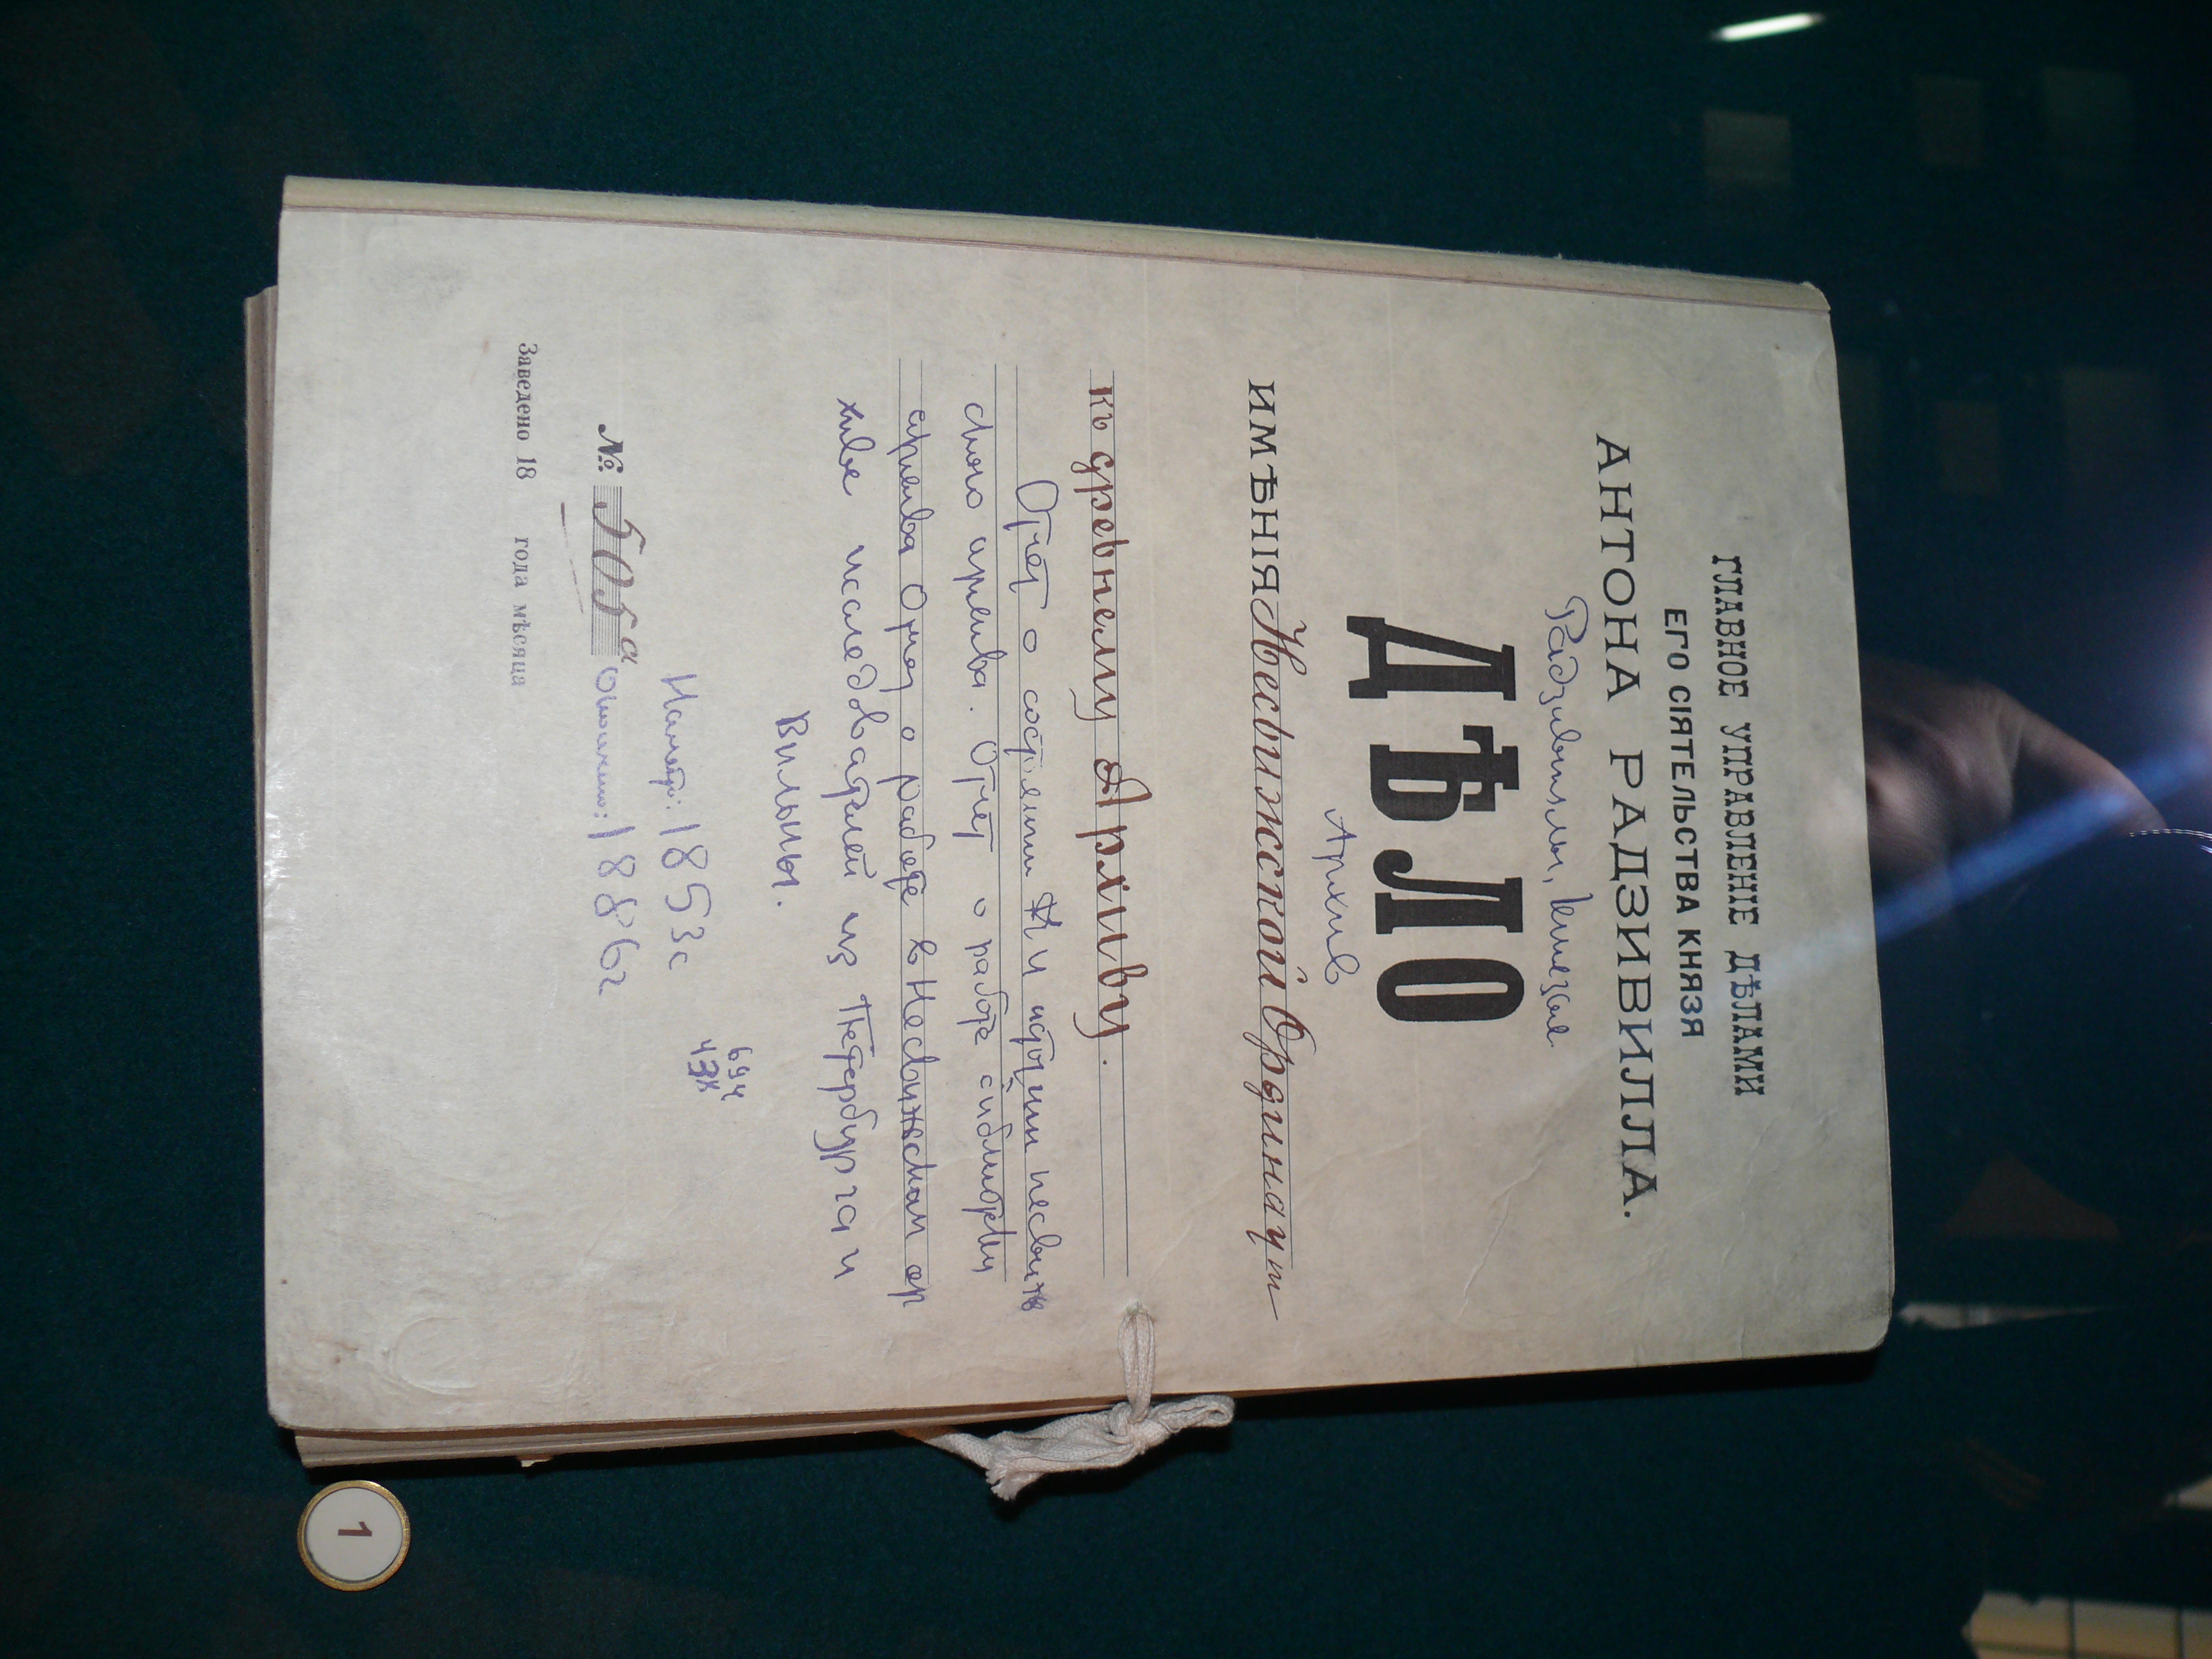 ГЛАВНОЕ УПРАВЛЕНІЕ ДѢЛАМИ
ЕГО СІЯТЕЛЬСТВА КНЯЗЯ
АНТОНА РАДЗИВИЛЛА.
Радзивиллы, князья
ДѢЛО
Архив
ИМѢНІЯ Несвижской Ординаціи
къ древнему Архиву.
Отчет о состоянии и несвиж
ского архива. Отчет о работе с
архива Отчет о работе в Несвижском ар
хиве исследователей из Петербурга и
Вильны.
694
Начато: 1853 г
№ 505а Окончено: 1886 г
Заведено 18 года мѣсяца
1